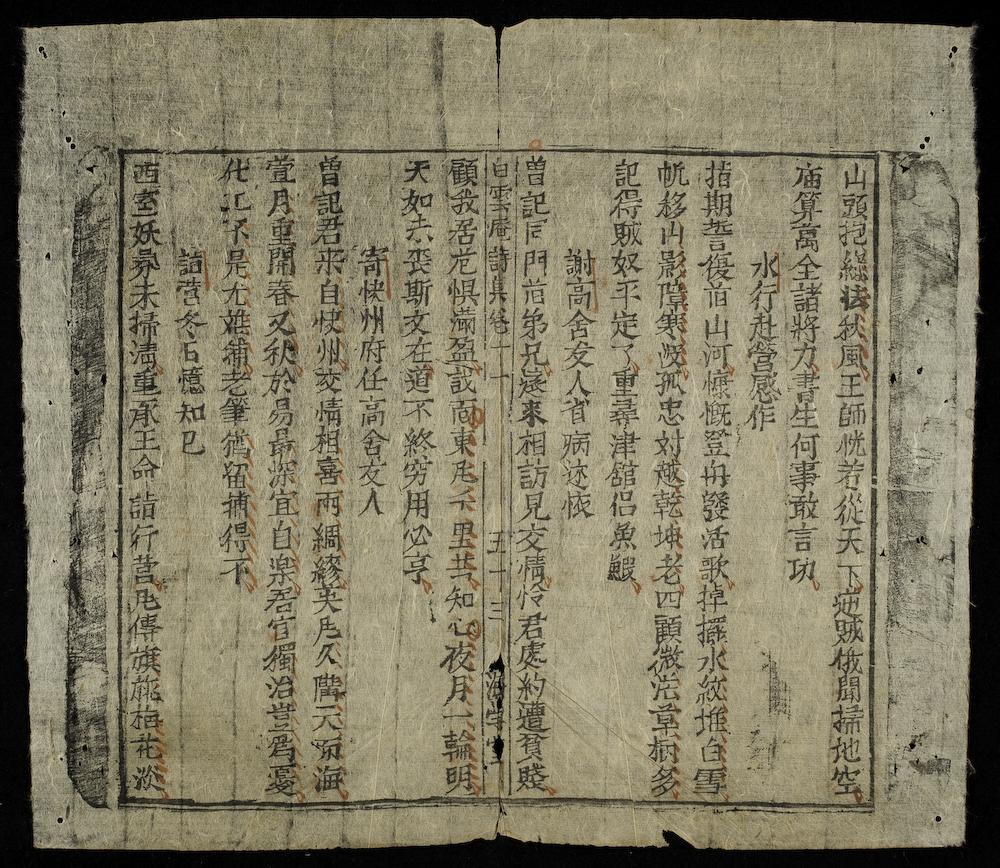 山頭抱総法秋風王師恍若從天下逆賊俄聞掃地空
庙算萬全諸將力書生何事敢言功
水行赴營感作
指期誓復旧山河慷慨登舟發活歌掉擺水紋堆白雪
帆移山影障寒波孤忠对越乾坤老四顧微茫草樹多
記得賊奴平定了重尋津舘侣魚鰕
謝高舍友人省病述怀
曽記同門旧弟兄遠來相訪見交情怜君處約遭貧賤
白雲庵詩集卷二 五十三 海學堂
顧我居尤惧滿盈説向東凮千里共知心夜月一輪明
天如未丧斯文在道不終穷用必亨
寄快州府任高舍友人
曽記君来自快州交情相喜两綢繆英凮久 天南海
萱月重開春又秋於易最深宜自樂居官獨治豈爲憂
仕工不是尤 補老筆猶留補得不
詣营冬 憶知己
西室妖氛未掃淸重承王命詣行营凮傳旗旆梅花淡